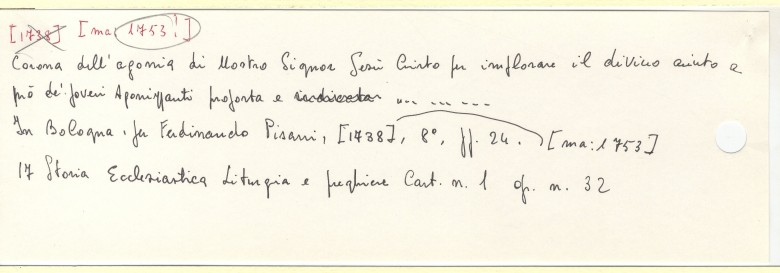 [1738] [ma: 1753!]
Corona dell'agonia di Nostro Signor Gesù Cristo per implorare il divino aiuto a
prò de' poveri Agonizzanti proposta e indirizzata ... ... ...
In Bologna, per Ferdinando Pisarri, [1738], 8°, pp. 24. [ma: 1753]
17 Storia Ecclesiastica Liturgia e preghiere Cart. n. 1 op. n. 32